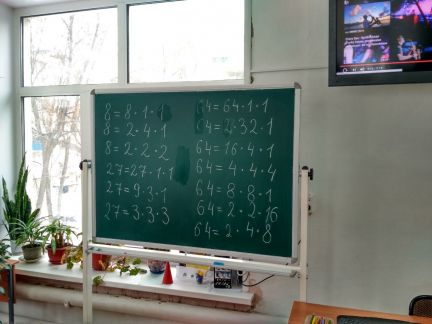 8 = 8 · 1 · 1
8 = 2 · 4 · 1
8 = 2 · 2 · 2
27 = 27 · 1 · 1
27 = 9 · 3 · 1
27 = 3 · 3 · 3
64 = 64 · 1 · 1
64 = 2 · 32 · 1
64 = 16 · 4 · 1
64 = 4 · 4 · 4
64 = 8 · 8 · 1
64 = 2 · 2 · 16
64 = 2 · 4 · 8